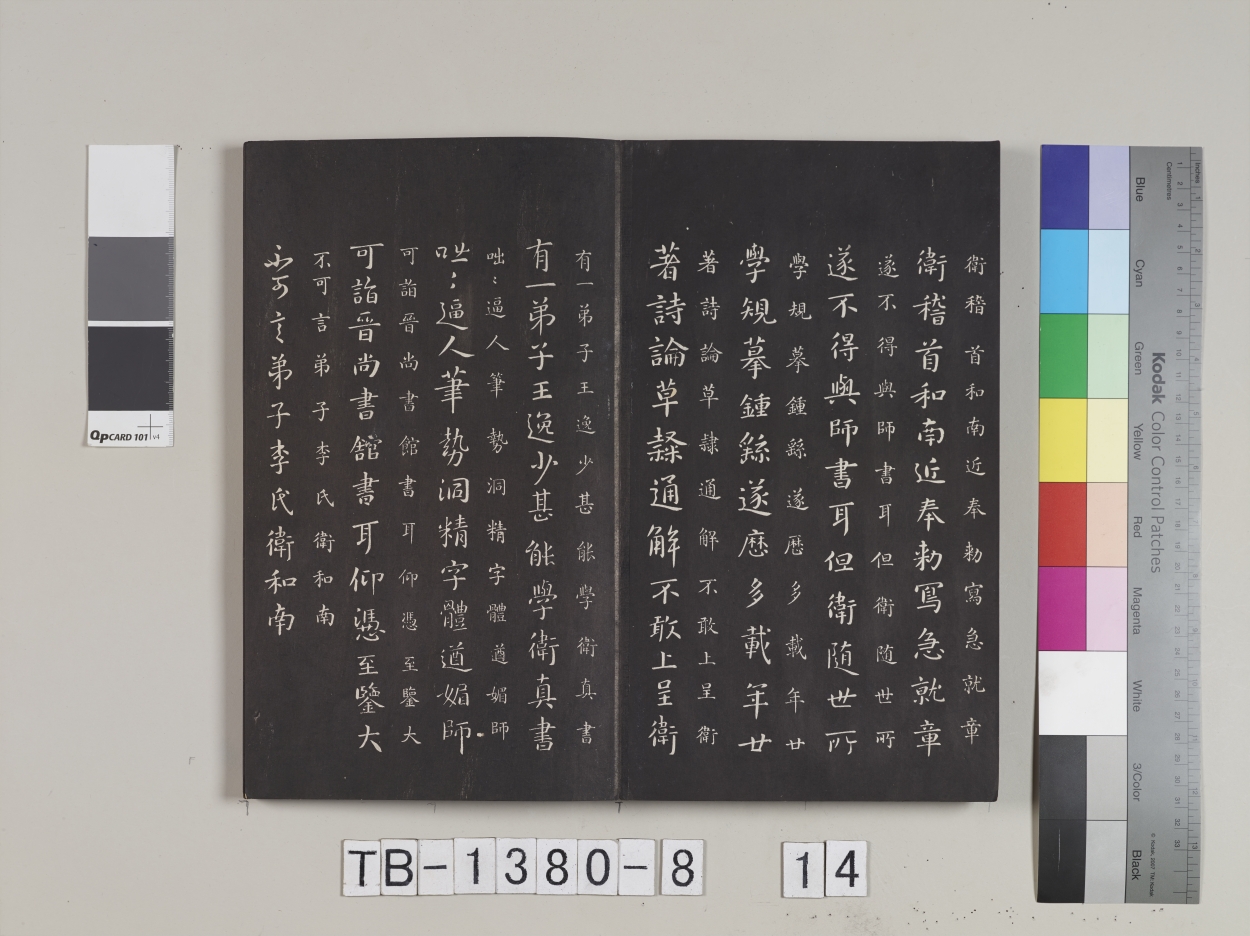 衛稽首和南近奉勅寫急就章
衛稽首和南近奉勅寫急就章
遂不得與師書耳但衛随世所
遂不得與師書耳但衛随世所
學規摹鍾繇遂歷多載年廿
學規摹鍾繇遂歷多載年廿
著詩論草隸通解不敢上呈衛
著詩論草隸通解不敢上呈衛
有一弟子王逸少甚能學衛真書
有一弟子王逸少甚能學衛真書
咄〻逼人筆勢洞精字體遒媚師
咄〻逼人筆勢洞精字體遒媚師
可詣晉尚書館書耳仰憑至鑒大
可詣晉尚書館書耳仰憑至鑒大
不可言弟子李氏衛和南
不可言弟子李氏衛和南
QPCARD 101 v4
Kodak Color Control Patches
Blue
Cyan
Green
Yellow
Red
Magenta
White
3/Color
Black
Inches
Centimetres
TB-1380-8 14